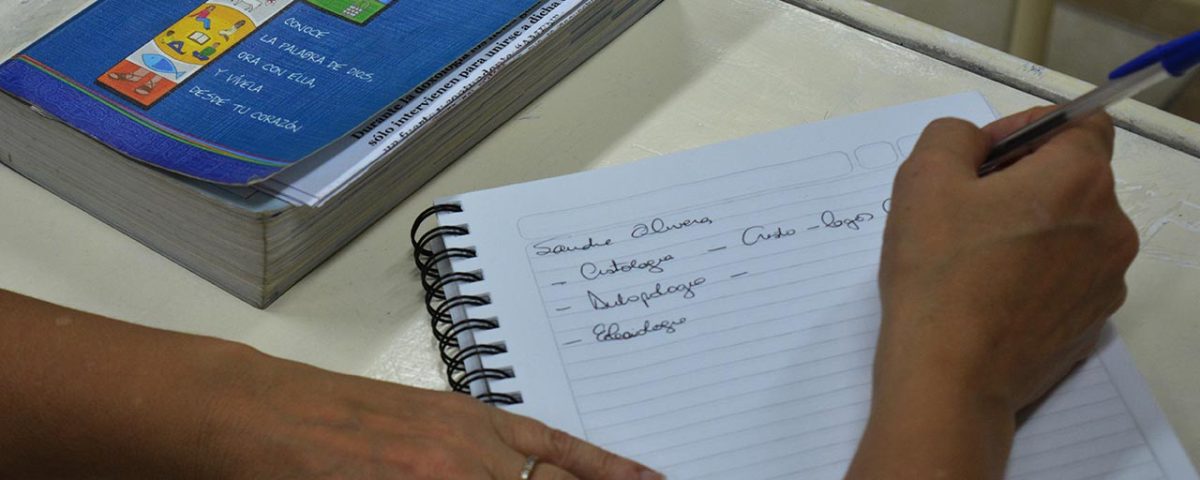 CONOCE
LA PALABRA DE DIOS,
ORA CON ELLA,
Y VÍVELA
DESDE TU CORAZÓN
sólo intervienen para unirse a dicha
Sandra Olivera
- Cristologia - Cristo - logos
- Antopologia -
- Eclesiologia